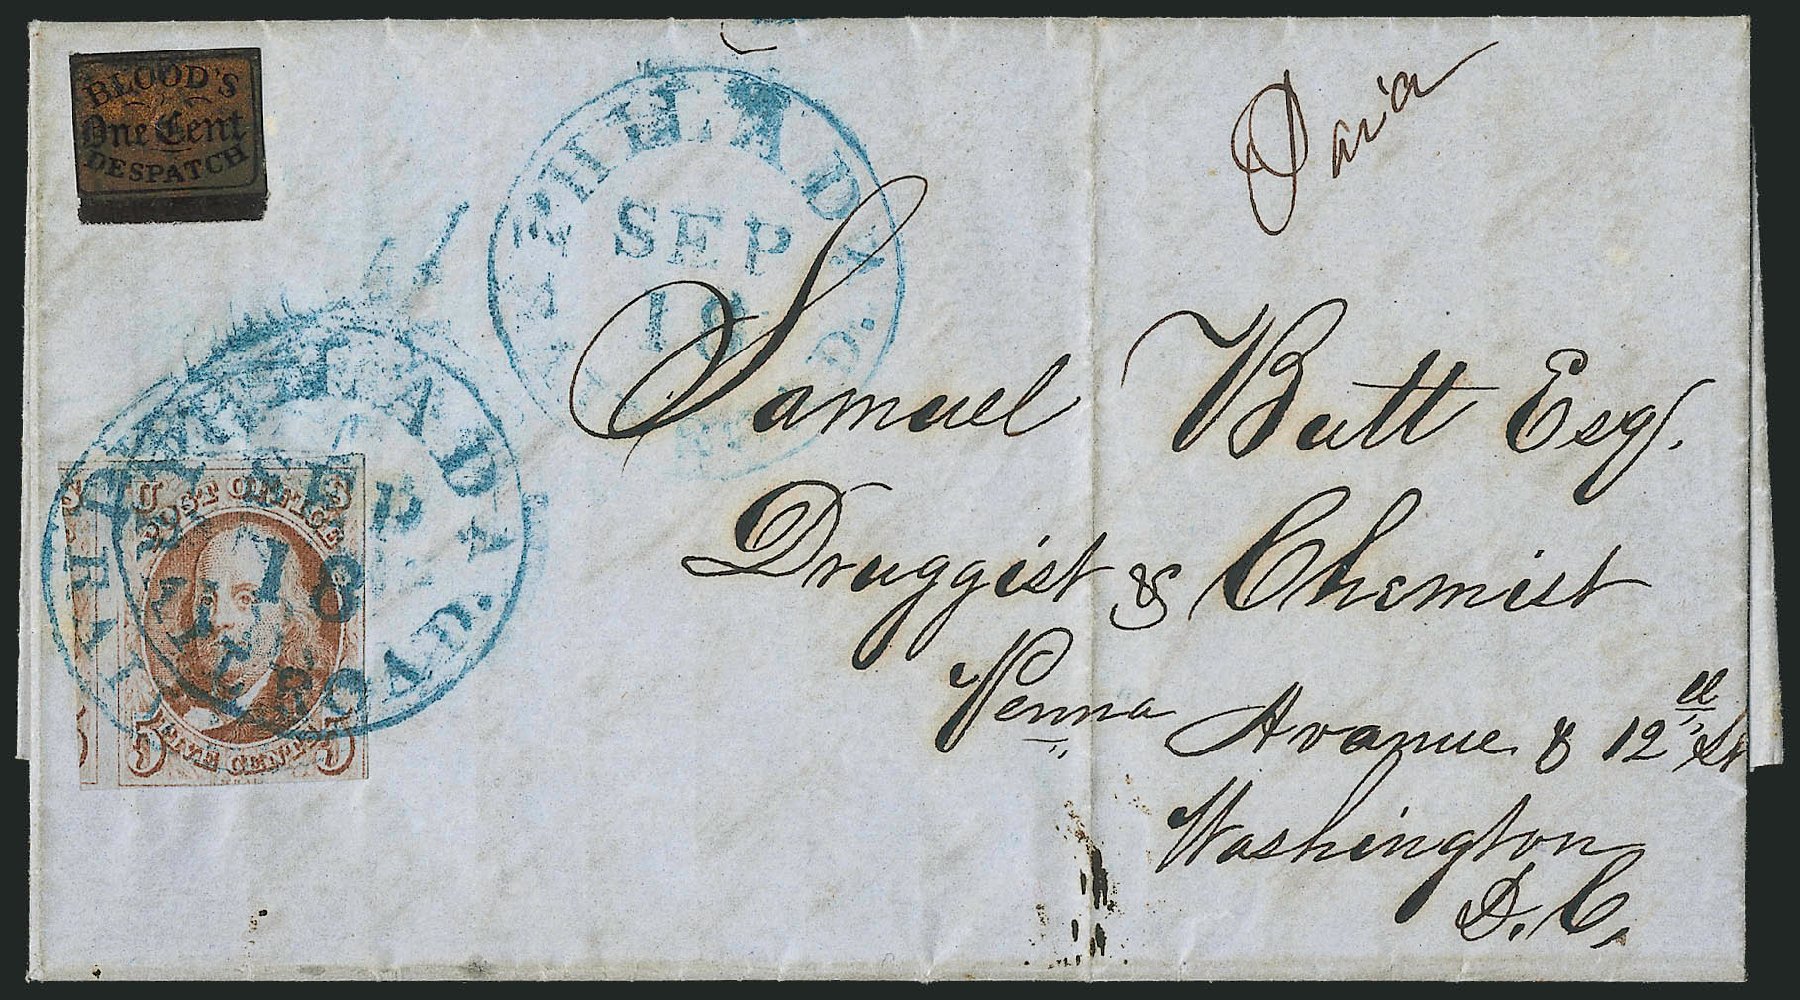 BLOOD'S
One Cent
DESPATCH
Paid
PHILADA
SEP
18
PHILADA
SEP
18
U S
POST OFFICE
FIVE CENTS
5 5
Samuel Butt Esq.
Druggist & Chemist
Penna Avanue & 12th St
Washington
D.C.